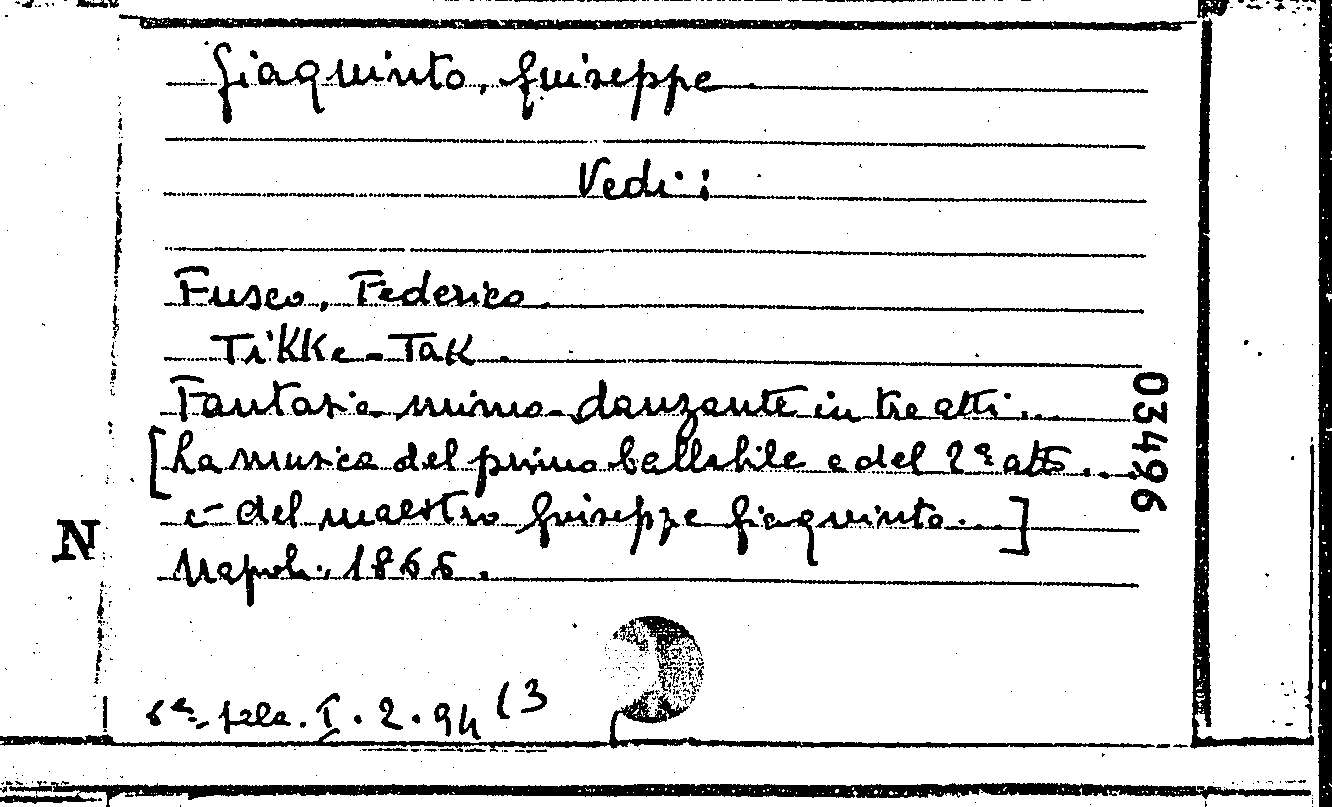 Giaquinto, Giuseppe
Vedi:
Fusco, Federico.
Tikke-Tak.
Fantasia mimo-danzante in tre atti...
[La musica del primo ballabile e del 2º atto...
è del maestro Giuseppe Giaquinto...]
Napoli, 1866.
6ª sala. I. 2. 94 (3
03496
N